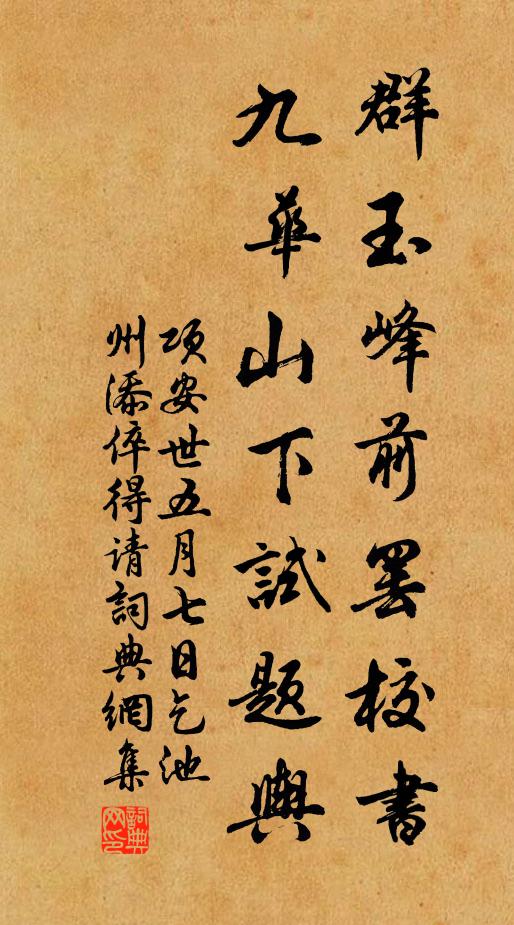 群玉峰前罢校書
九華山下試题輿
项安世五月七日乞池
州添倅得请詞典網集
詞典网印